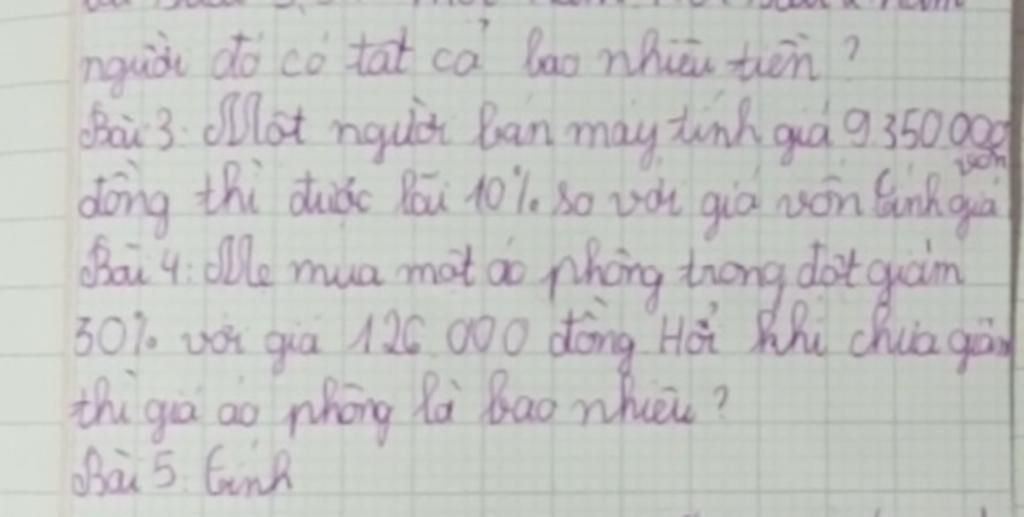 người đó có tất cả bao nhiêu tiền ?
Bài 3. Một người bán máy tính giá 9 350 000
đồng thì được lãi 10% so với giá vốn tính giá vốn
Bài 4: Mẹ mua một áo phông trong đợt giảm
30% với giá 126 000 đồng Hỏi khi chưa giảm
thì giá áo phông là bao nhiêu ?
Bài 5. Tính